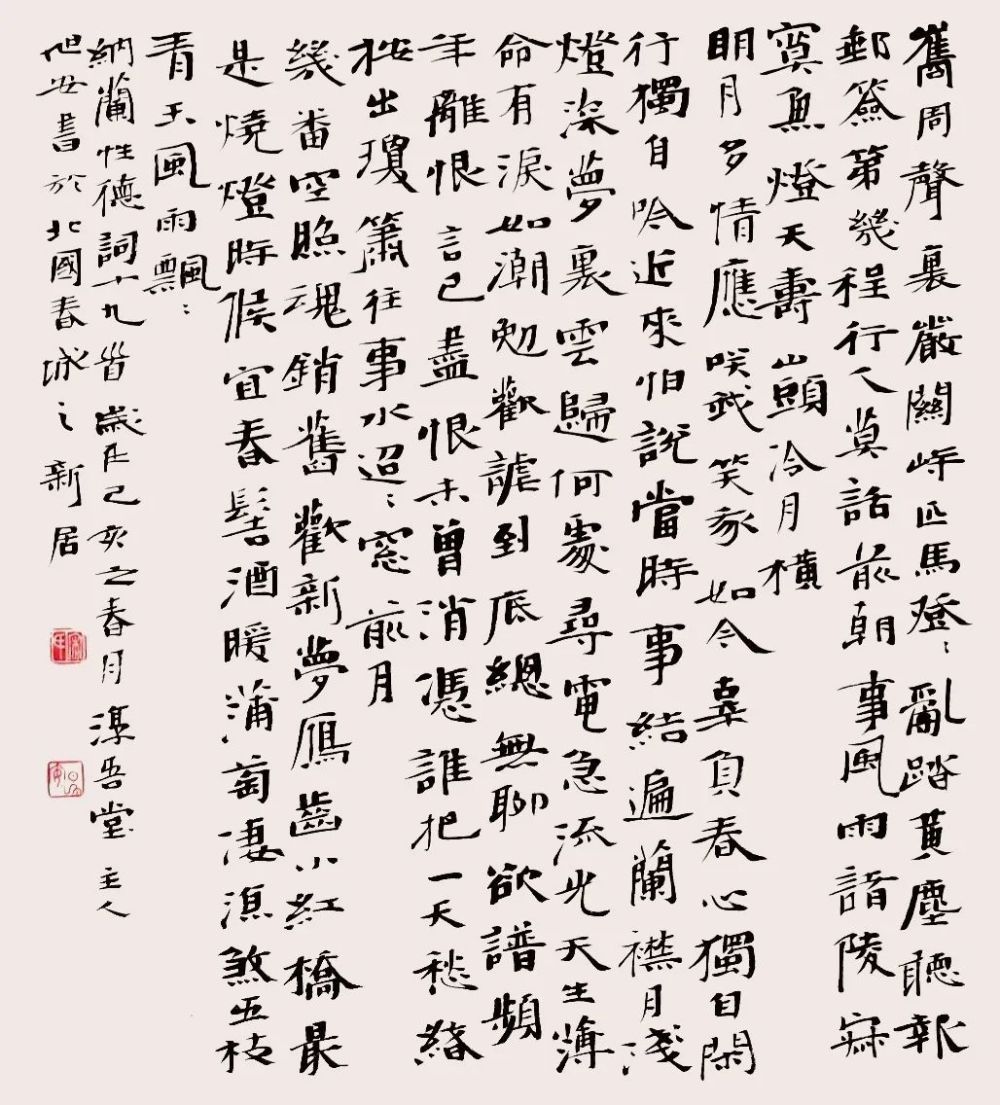 巂周聲裏嚴關峙匹馬登〻亂踏黃塵聽報
郵簽第幾程行人莫話前朝事風雨諸陵寂
寞魚燈天壽山頭冷月橫
明月多情應咲我笑我如今辜負春心獨自閑
行獨自吟近來怕說當時事結遍蘭襟月淺
燈深夢裏雲歸何處尋電急流光天生薄
命有淚如潮勉歡謔到底總無聊欲譜頻
年離恨言已盡恨未曾消憑誰把一天愁緒
按出瓊簫往事水迢〻窓前月
幾番空照魂銷舊歡新夢雁齒小紅橋最
是燒燈時候宜春髻酒暖蒲萄淒涼煞五枝
青玉風雨飄〻
納蘭性德詞十九首歲在己亥之春月吾堂主人
旭安書於北國春城之新居